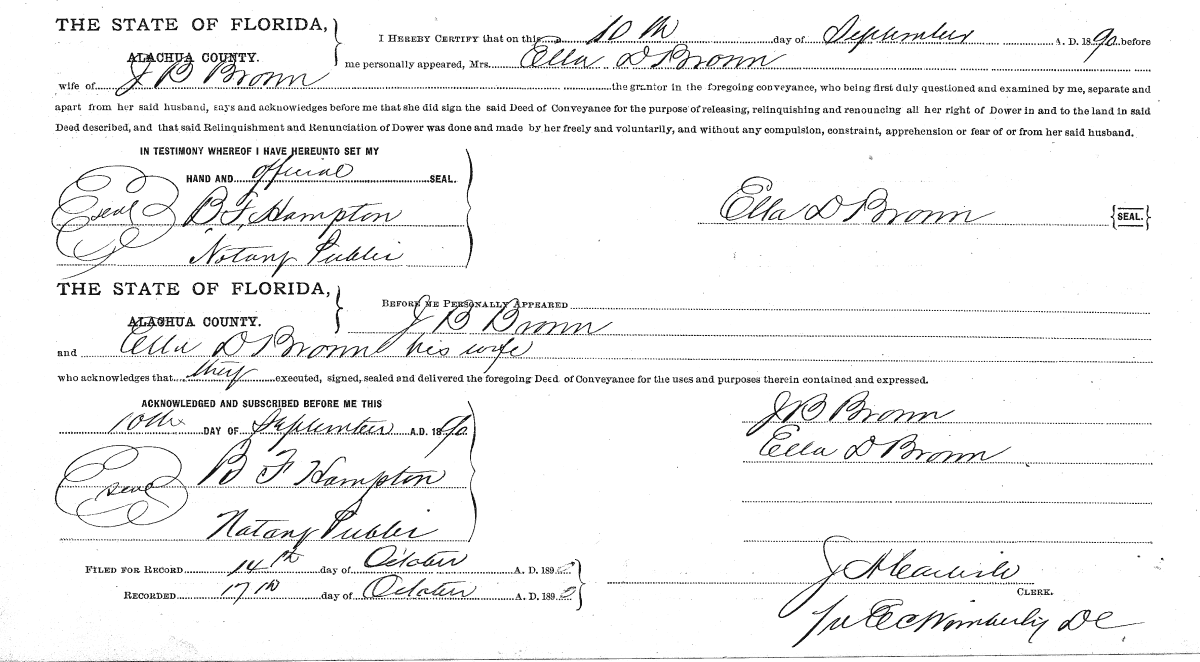 THE STATE OF FLORIDA,
ALACHUA COUNTY.
I HEREBY CERTIFY that on this 10th day of September A. D. 1890 before
me personally appeared, Mrs. Ella D Brown
wife of J B Brown the grantor in the foregoing conveyance, who being first duly questioned and examined by me, separate and
apart from her said husband, says and acknowledges before me that she did sign the said Deed of Conveyance for the purpose of releasing, relinquishing and renouncing all her right of Dower in and to the land in said
Deed described, and that said Relinquishment and Renunciation of Dower was done and made by her freely and voluntarily, and without any compulsion, constraint, apprehension or fear of or from her said husband.
IN TESTIMONY WHEREOF I HAVE HEREUNTO SET MY
HAND AND official SEAL.
seal B F Hampton
Notary Public
Ella D Brown {SEAL.}
THE STATE OF FLORIDA,
ALACHUA COUNTY.
BEFORE ME PERSONALLY APPEARED
J B Brown
and Ella D Brown his wife
who acknowledges that they executed, signed, sealed and delivered the foregoing Deed of Conveyance for the uses and purposes therein contained and expressed.
ACKNOWLEDGED AND SUBSCRIBED BEFORE ME THIS
10th DAY OF September A.D. 1890
seal B F Hampton
Notary Public
J B Brown
Ella D Brown
FILED FOR RECORD 14th day of October A. D. 189
RECORDED 17th day of October A. D. 189
CLERK.
Wimberly DC